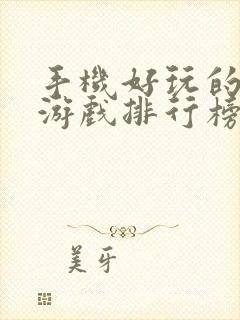 手機好玩的
游戲排行榜
美牙